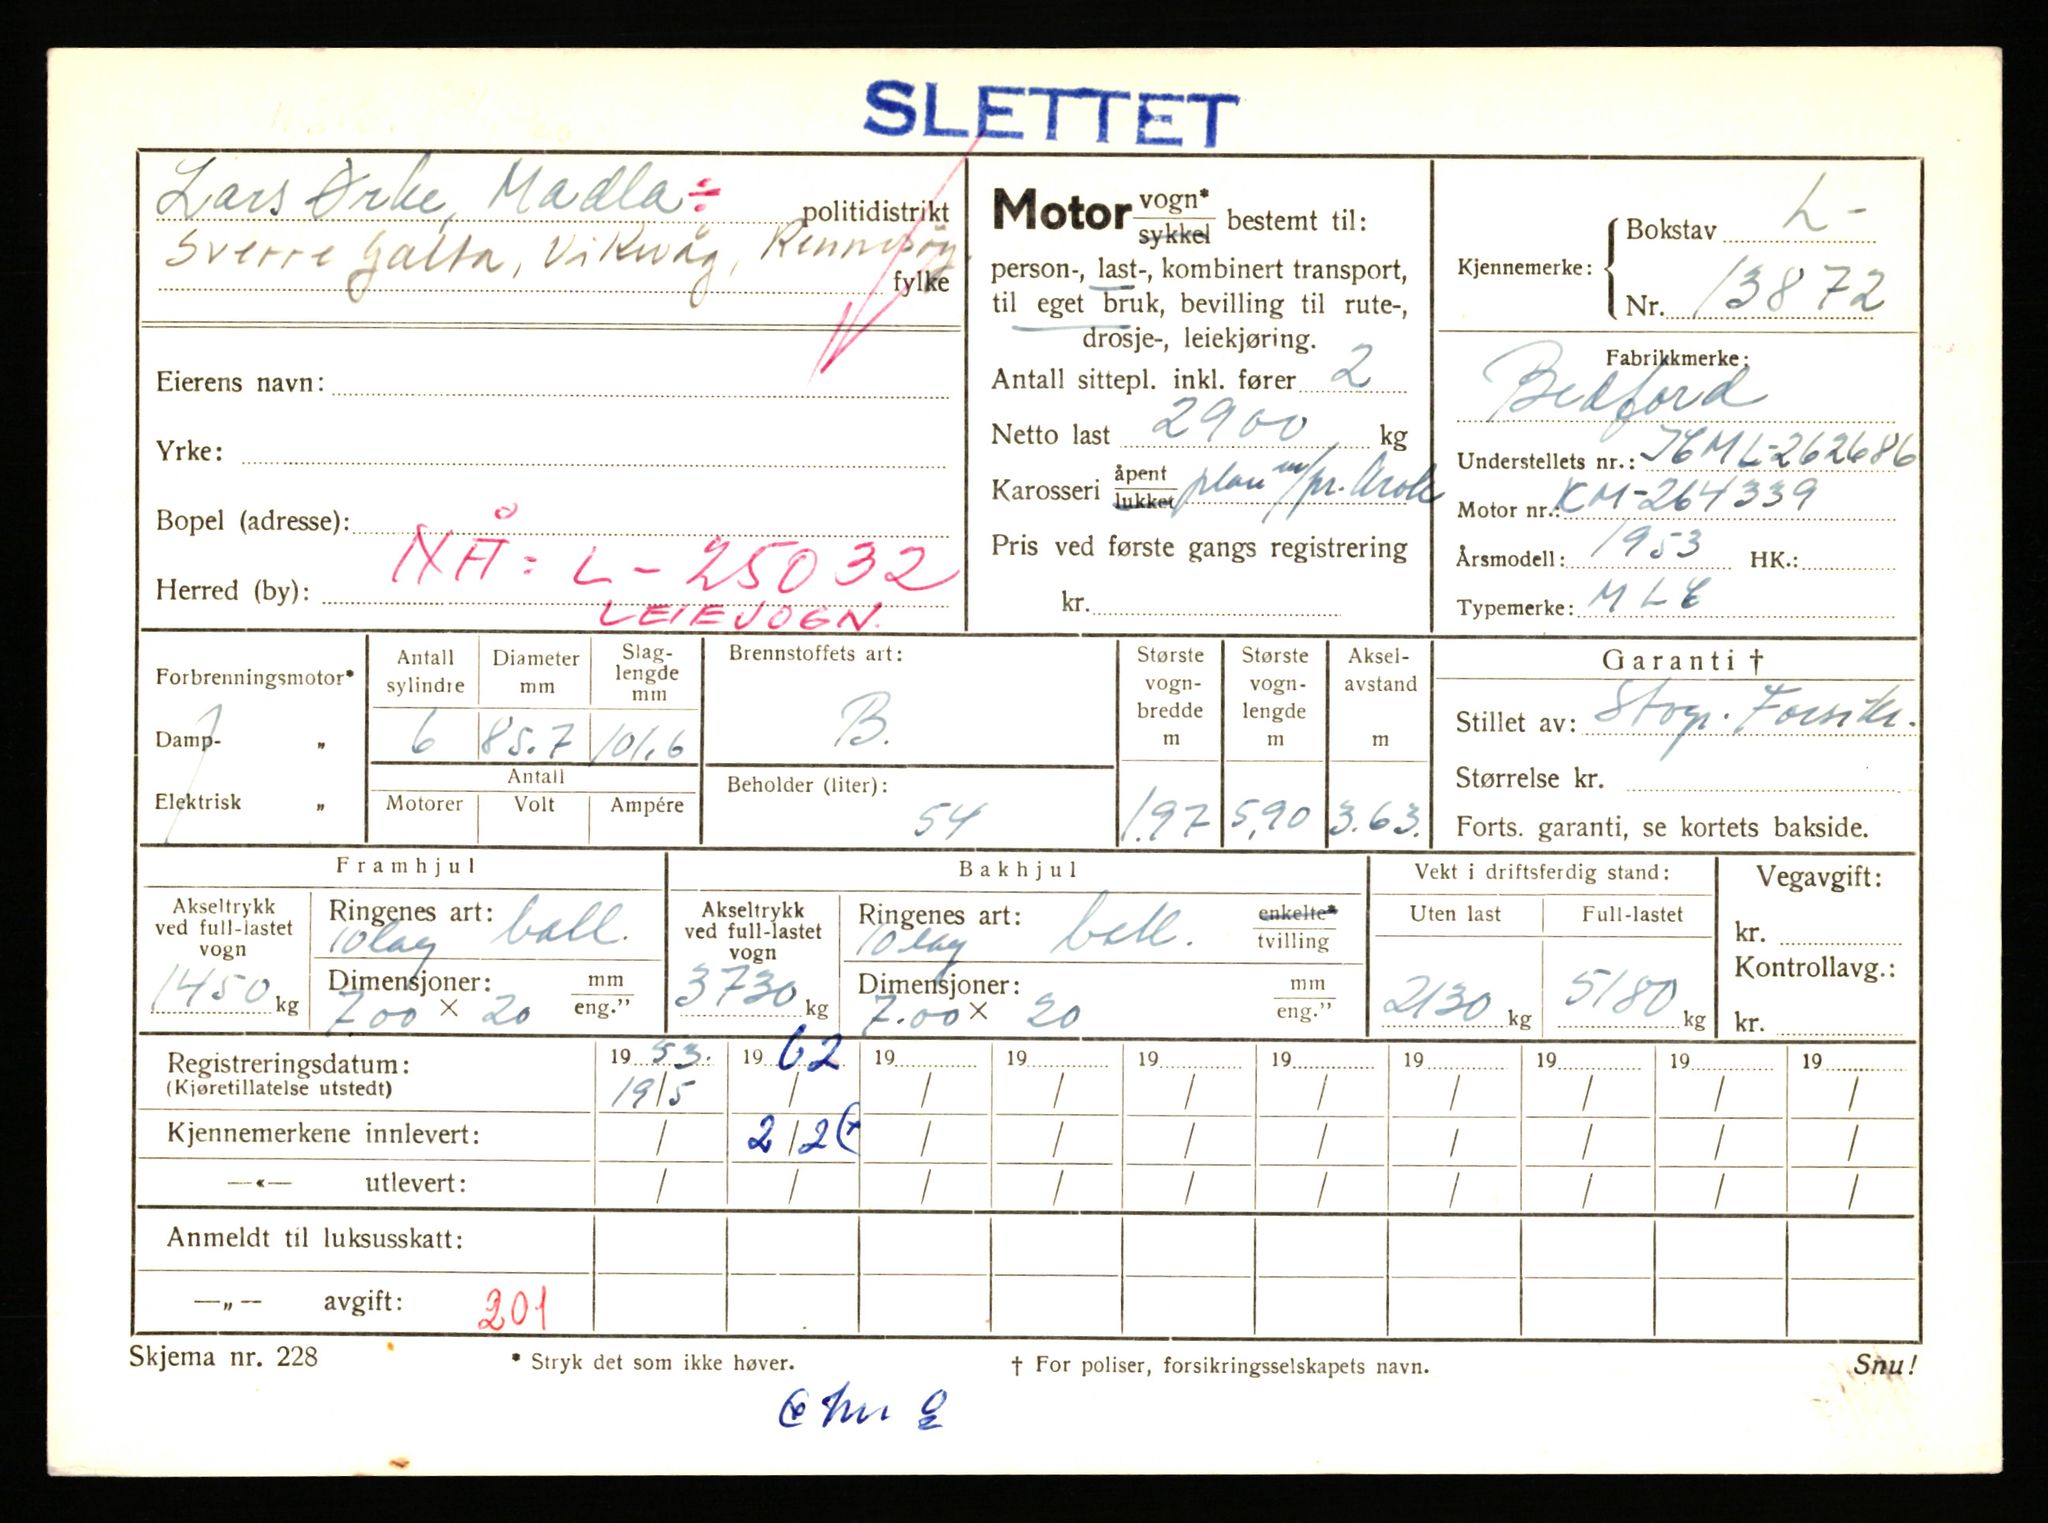 SLETTET
Lars Ørke, Madla ÷ politidistrikt
Sverre Galta, Vikevåg, Rennesøy. fylke
Eierens navn:
Yrke:
Bopel (adresse):
NÅ: L-25032
Herred (by):
LEIEVOGN.
Motor vogn* sykkel bestemt til:
person-, last-, kombinert transport,
til eget bruk, bevilling til rute-,
drosje-, leiekjøring.
Antall sittepl. inkl. fører 2
Netto last 2900 kg
Karosseri åpent lukket plan m/pr.
Pris ved første gangs registrering
kr.
Kjennemerke: Bokstav L-
Nr. 13872
Fabrikkmerke:
Bedford
Understellets nr.: 262686
Motor nr.: KM-264339
Årsmodell: 1953 HK.:
Typemerke: MLC
Forbrenningsmotor*
Damp- „
Elektrisk „
Antall sylindre 6
Diameter mm 85.7
Slaglengde mm 101,6
Antall
Motorer Volt Ampére
Brennstoffets art:
B.
Beholder (liter):
54
Største vognbredde m 1.97
Største vognlengde m 5,90
Akselavstand m 3.63.
Garanti †
Stillet av: Forsikr.
Størrelse kr.
Forts. garanti, se kortets bakside.
Framhjul
Akseltrykk ved full-lastet vogn 1450 kg
Ringenes art: 10 lag ball.
Dimensjoner: 7.00 × 20 mm eng.”
Bakhjul
Akseltrykk ved full-lastet vogn 3730 kg
Ringenes art: 10 lag ball. enkelte* tvilling
Dimensjoner: 7.00 × 20 mm eng.”
Vekt i driftsferdig stand:
Uten last 2130 kg
Full-lastet 5180 kg
Vegavgift:
kr.
Kontrollavg.:
kr.
Registreringsdatum: 19 53. 19 62 19 19 19 19 19 19 19 19
(Kjøretillatelse utstedt) 19/5 / / / / / / / / /
Kjennemerkene innlevert: / 2/2 (x / / / / / / / /
—«— utlevert: / / / / / / / / / /
Anmeldt til luksusskatt:
—„— avgift: 201
Skjema nr. 228 * Stryk det som ikke høver. † For poliser, forsikringsselskapets navn. Snu!